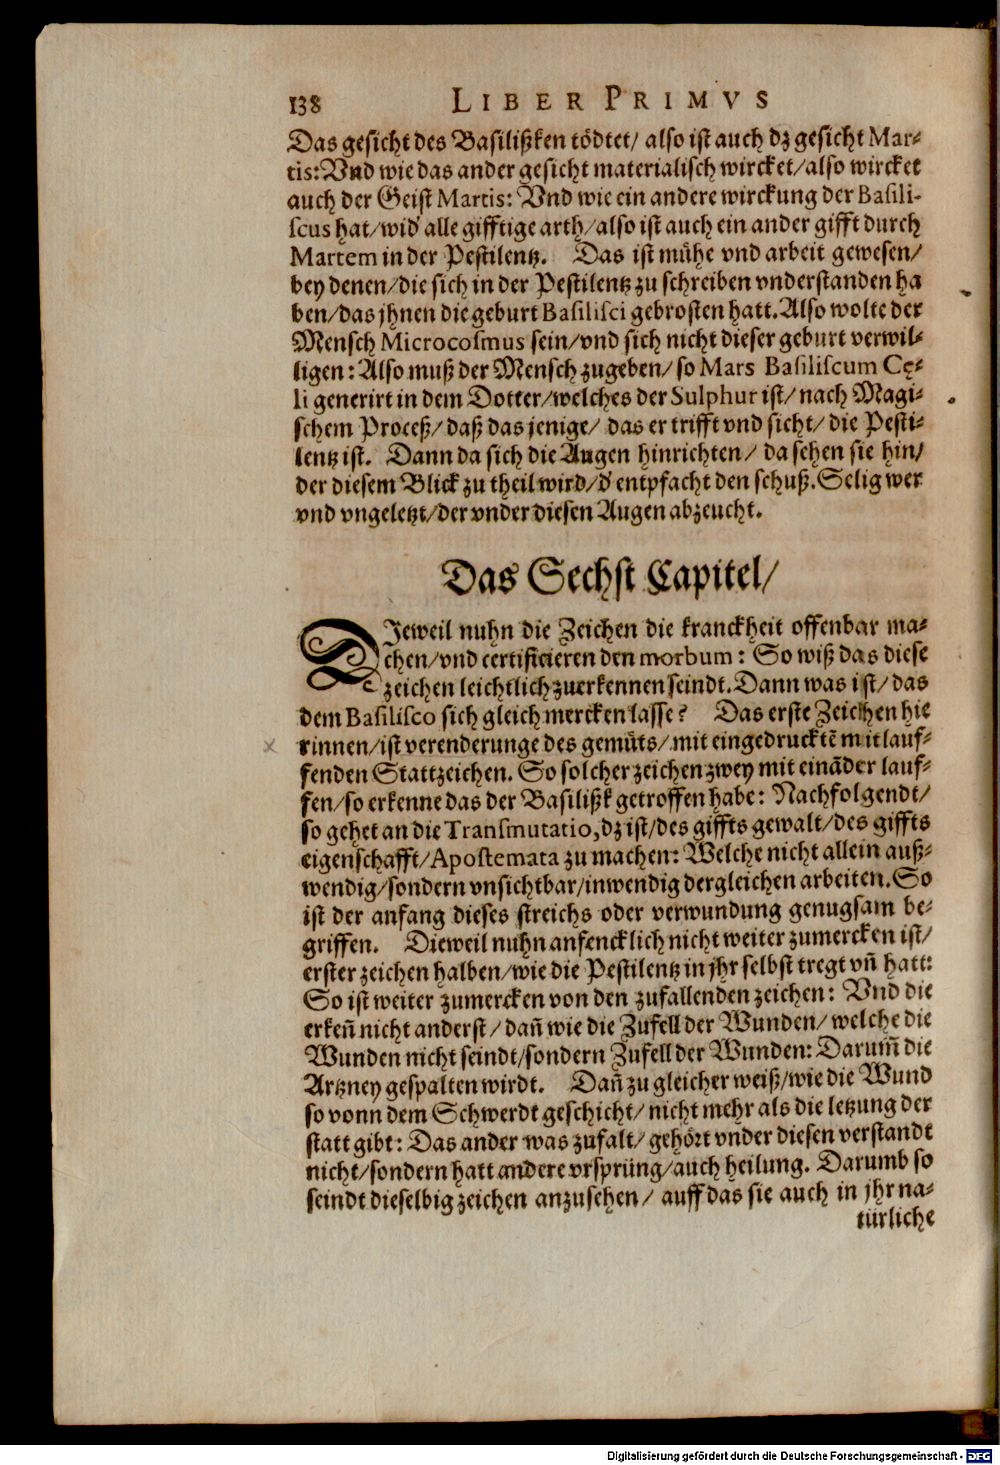 138 LIBER PRIMVS
Das gesicht des Basilißken tödtet/ also ist auch dz gesicht Mar-
tis: Vnd wie das ander gesicht materialisch wircket/also wircket
auch der Geist Martis: Vnd wie ein andere wirckung der Basili-
scus hat/wid' alle gifftige arth/also ist auch ein ander gifft durch
Martem in der Pestilentz. Das ist mühe vnd arbeit gewesen/
bey denen/die sich in der Pestilentz zu schreiben vnderstanden ha
ben/das jhnen die geburt Basilisci gebrosten hatt. Also wolte der
Mensch Microcosmus sein/vnd sich nicht dieser geburt verwil-
ligen: Also muß der Mensch zugeben/ so Mars Basiliscum Cę-
li generirt in dem Dotter/welches der Sulphur ist/ nach Magi-
schem Proceß/ daß das jenige/ das er trifft vnd sicht/ die Pesti-
lentz ist. Dann da sich die Augen hinrichten/ da sehen sie hin/
der diesem Blick zu theil wird/d' entpfacht den schuß. Selig wer
vnd vngeletzt/der vnder diesen Augen abzeucht.
Das Sechst Capitel/
DJeweil nuhn die Zeichen die kranckheit offenbar ma-
chen/vnd certificieren den morbum: So wiß das diese
zeichen leichtlich zuerkennen seindt. Dann was ist/ das
dem Basilisco sich gleich mercken lasse? Das erste Zeichen hie
rinnen/ist verenderunge des gemüts/mit eingedrucktē mit lauf-
fenden Stattzeichen. So solcher zeichen zwey mit einãder lauf-
fen/so erkenne das der Basilißk getroffen habe: Nachfolgendt/
so gehet an die Transmutatio, dz ist/des giffts gewalt/des giffts
eigenschafft/Apostemata zu machen: Welche nicht allein auß-
wendig/sondern vnsichtbar/inwendig dergleichen arbeiten. So
ist der anfang dieses streichs oder verwundung genugsam be-
griffen. Dieweil nuhn anfencklich nicht weiter zumercken ist/
erster zeichen halben/wie die Pestilentz in jhr selbst tregt vñ hatt:
So ist weiter zumercken von den zufallenden zeichen: Vnd die
erkeñ nicht anderst/ dañ wie die Zufell der Wunden/welche die
Wunden nicht seindt/sondern Zufell der Wunden: Darum̃ die
Artzney gespalten wirdt. Dañ zu gleicher weiß/wie die Wund
so vonn dem Schwerdt geschicht/ nicht mehr als die letzung der
statt gibt: Das ander was zufalt/ gehört vnder diesen verstandt
nicht/sondern hatt andere vrsprüng/auch heilung. Darumb so
seindt dieselbig zeichen anzusehen/ auff das sie auch in jhr na-
türliche
Digitalisierung gefördert durch die Deutsche Forschungsgemeinschaft - DFG